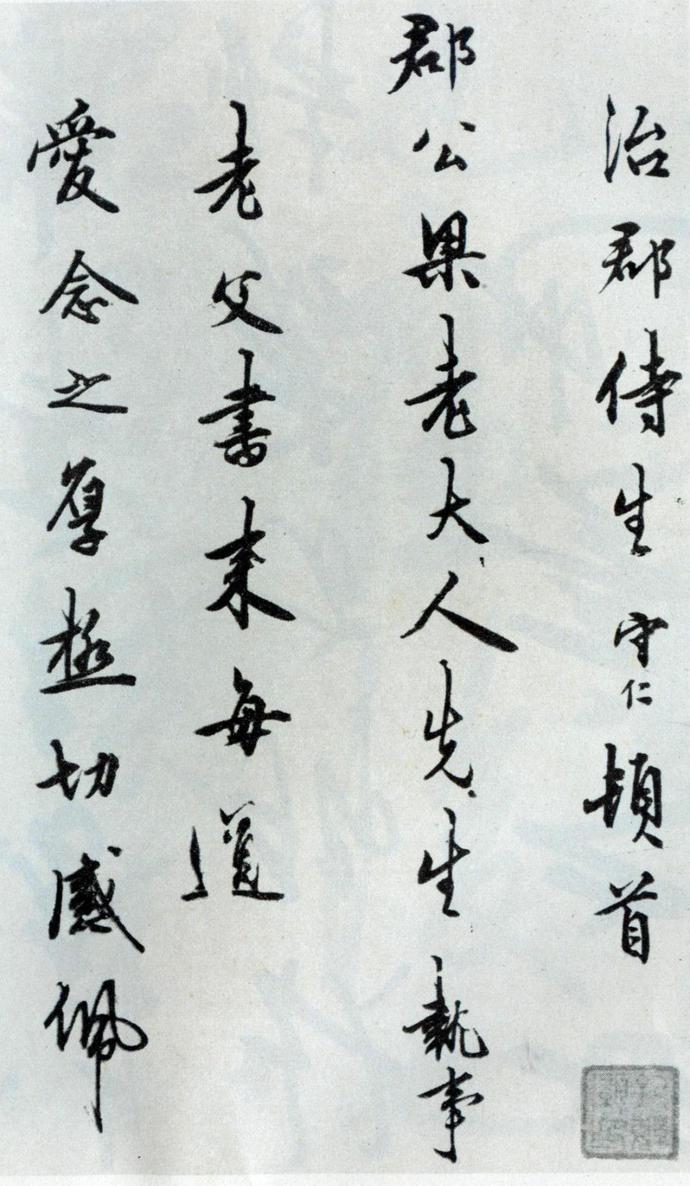 治郡侍生守仁頓首
郡公梁老大人先生執事
老父書來每道
愛念之厚極切感佩